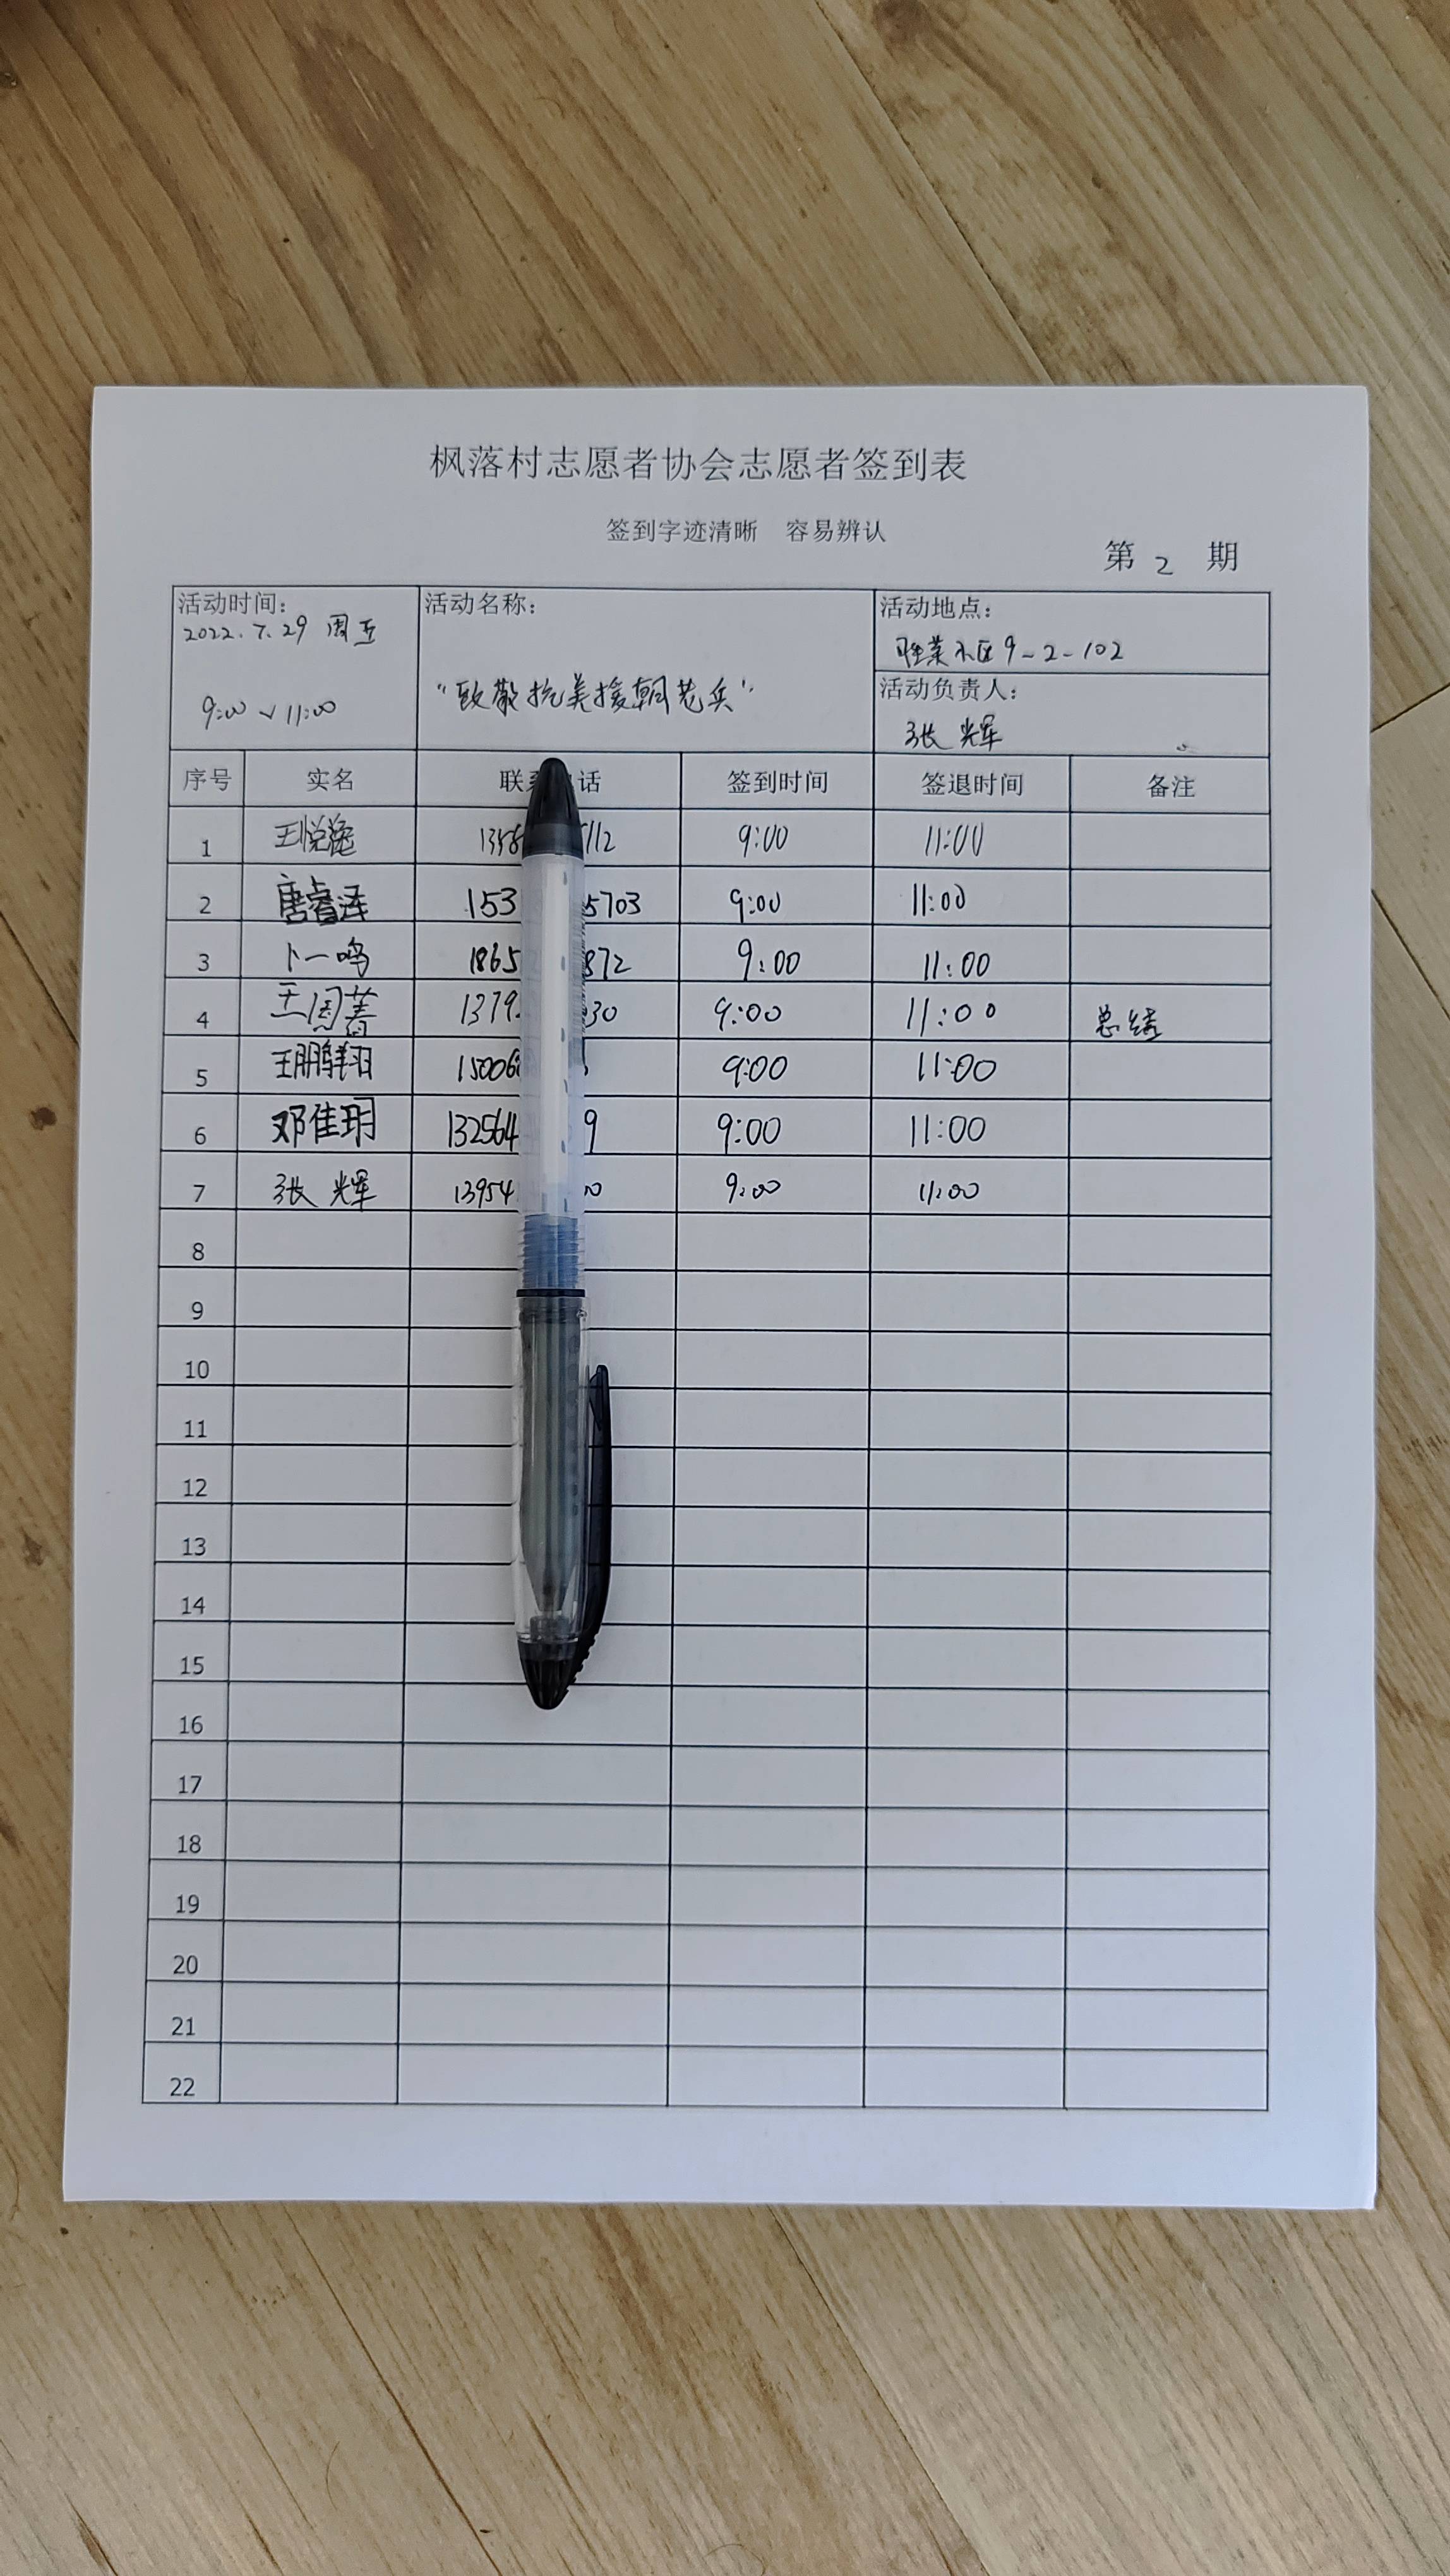 枫落村志愿者协会志愿者签到表
签到字迹清晰 容易辨认
第 2 期
活动时间：
2022.7.29 周五
9:00 ~ 11:00
活动名称：
"致敬抗美援朝老兵"
活动地点：
小区9-2-102
活动负责人：
张辉
序号 实名 联 话 签到时间 签退时间 备注
1 王悦 112 9:00 11:00
2 唐睿泽 153 5703 9:00 11:00
3 卜一鸣 1865 872 9:00 11:00
4 王周菁 1379 30 9:00 11:00 总结
5 王鹏翔 15006 9:00 11:00
6 邓佳玥 132564 9 9:00 11:00
7 张辉 13954 00 9:00 11:00
8
9
10
11
12
13
14
15
16
17
18
19
20
21
22